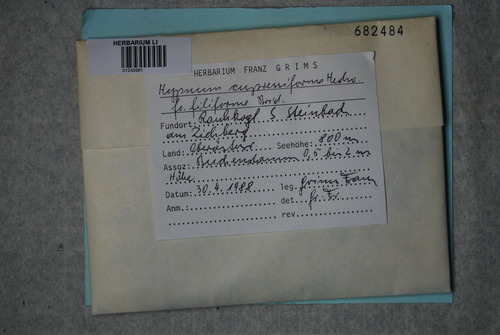 HERBARIUM LI
682484
HERBARIUM FRANZ GRIMS
Hypnum cupressiforme Hedw.
fo. filiforme Brid.
Fundort: Rauhkogl S. Steinbach
am Ziehberg
Land: Oberösterr. Seehöhe: 800 m
Assoz: Buchenstamm 0,5 bis 2 m
Höhe
Datum: 30.4.1988 leg. Grims Franz
Anm.: det. Gr. Fr.
rev.